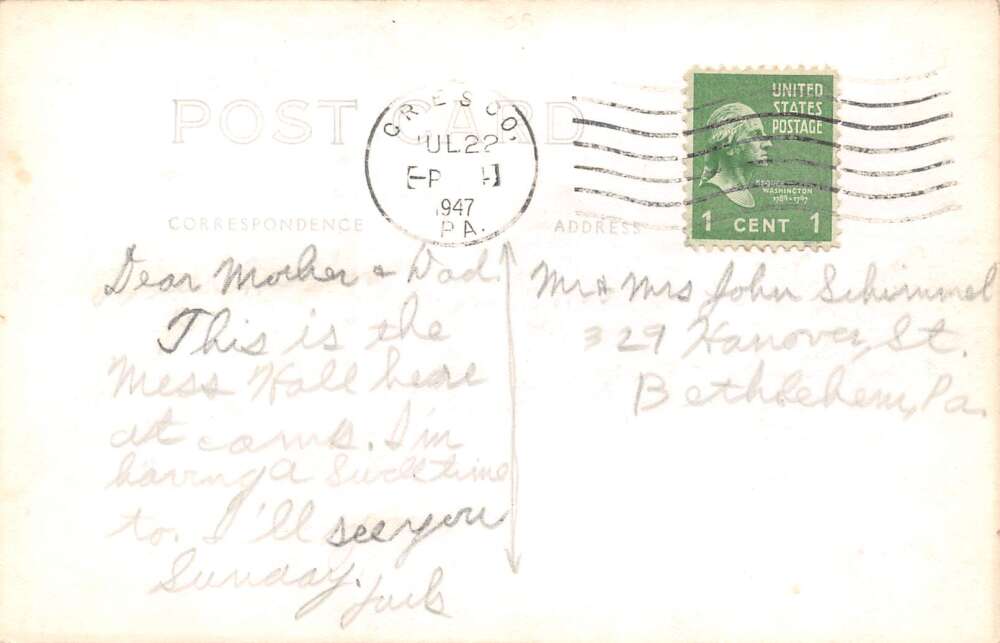 POST CARD
CRESCO,
JUL 22
1947
PA.
UNITED
STATES
POSTAGE
GEORGE
WASHINGTON
1789-1797
1 CENT 1
CORRESPONDENCE
ADDRESS
Dear Mother & Dad.
This is the
Mess Hall here
at camp. I'm
having a swell time
to. I'll see you
Sunday.
Jack
Mr & Mrs John Schimmel
329 Hanover St.
Bethlehem, Pa.